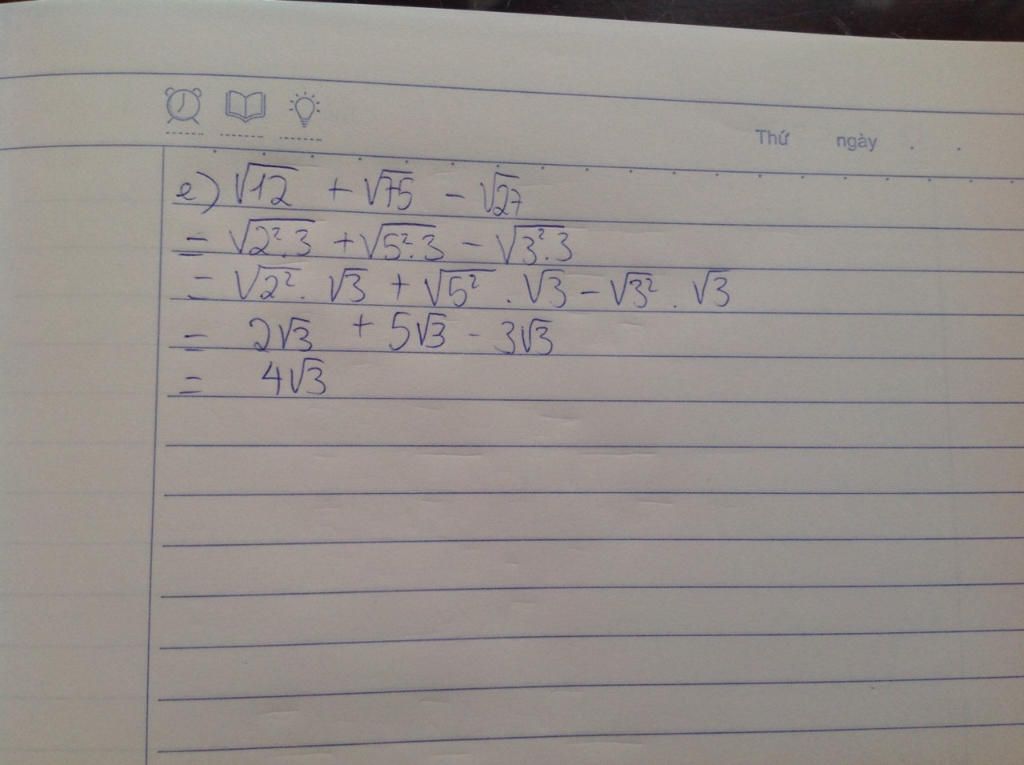 Thứ ngày . .
e) √12 + √75 - √27
= √2².3 + √5².3 - √3².3
= √2² . √3 + √5² . √3 - √3² . √3
= 2√3 + 5√3 - 3√3
= 4√3